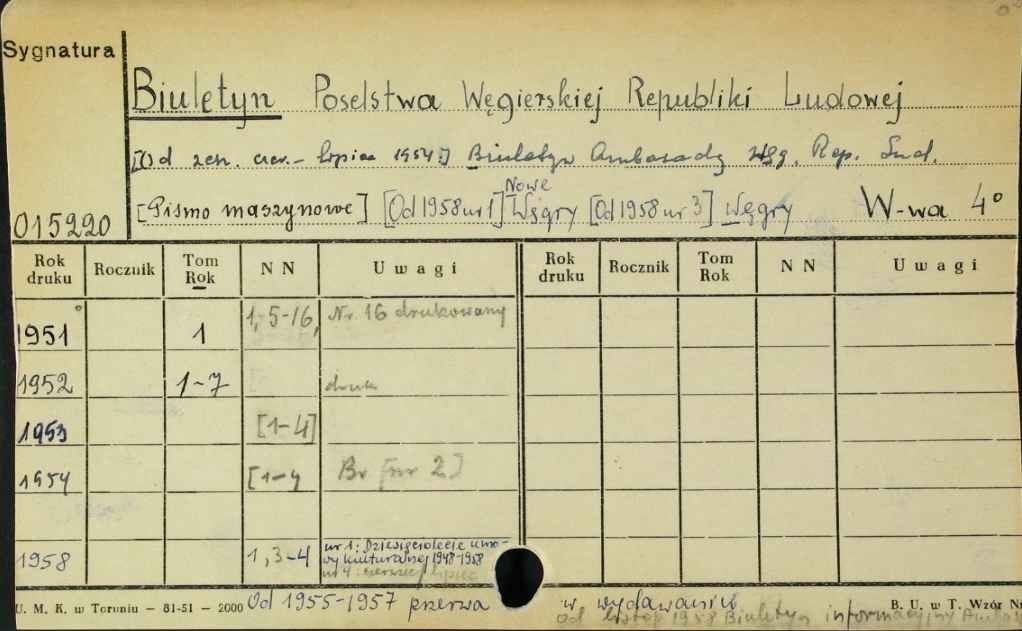 Sygnatura
Biuletyn Poselstwa Węgierskiej Republiki Ludowej
[Od zesz. czer. - lipiec 1954:] Biuletyn Ambasady Węg. Rep. Lud.
[Pismo maszynowe] [Od 1958 nr 1] Nowe Węgry [Od 1958 nr 3] Węgry W-wa 4°
015220
Rok druku Rocznik Tom Rok N N Uwagi Rok druku Rocznik Tom Rok N N Uwagi
1951 1 1,-5-16, Nr. 16 drukowany
1952 1-7 druk
1953 [1-4]
1954 [1-4 Br [nr 2]
1958 1, 3-4 nr 1: Dziesięciolecie umo-
wy kulturalnej 1948-1958
nr 4: czerwiec/lipiec
U. M. K. w Toruniu – 81-51 – 2000 Od 1955-1957 przerwa w wydawaniu B. U. w T. Wzór Nr
od listop 1958 Biuletyn informacyjny Ambas